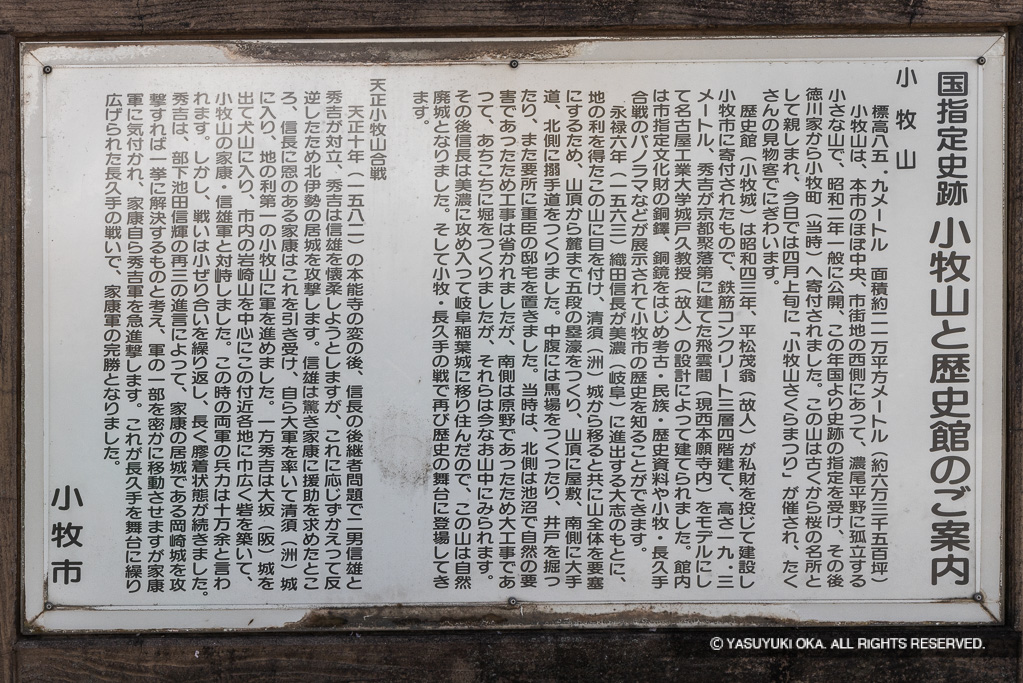 国指定史跡 小牧山と歴史館のご案内
小牧山
標高八五・九メートル 面積約二一万平方メートル（約六万三千五百坪）
小牧山は、本市のほぼ中央、市街地の西側にあって、濃尾平野に孤立する
小さな山で、昭和二年一般に公開、この年国より史跡の指定を受け、その後
徳川家から小牧町（当時）へ寄付されました。この山は古くから桜の名所と
して親しまれ、今日では四月上旬に「小牧山さくらまつり」が催され、たく
さんの見物客でにぎわいます。
歴史館（小牧城）は昭和四三年、平松茂翁（故人）が私財を投じて建設し
小牧市に寄付されたもので、鉄筋コンクリート三層四階建て、高さ一九・三
メートル、秀吉が京都聚落第に建てた飛雲閣（現西本願寺内）をモデルにし
て名古屋工業大学城戸久教授（故人）の設計によって建てられました。館内
は市指定文化財の銅鐸、銅鏡をはじめ考古・民族・歴史資料や小牧・長久手
合戦のパノラマなどが展示されて小牧市の歴史を知ることができます。
永禄六年（一五六三）織田信長が美濃（岐阜）に進出する大志のもとに、
地の利を得たこの山に目を付け、清須（洲）城から移ると共に山全体を要塞
にするため、山頂から麓まで五段の塁濠をつくり、山頂に屋敷、南側に大手
道、北側に搦手道をつくりました。中腹には馬場をつくったり、井戸を掘っ
たり、また要所に重臣の邸宅を置きました。当時は、北側は池沼で自然の要
害であったため工事は省かれましたが、南側は原野であったため大工事であ
って、あちこちに堀をつくりましたが、それらは今なお山中にみられます。
その後信長は美濃に攻め入って岐阜稲葉城に移り住んだので、この山は自然
廃城となりました。そして小牧・長久手の戦で再び歴史の舞台に登場してき
ます。
天正小牧山合戦
天正十年（一五八二）の本能寺の変の後、信長の後継者問題で二男信雄と
秀吉が対立、秀吉は信雄を懐柔しようとしますが、これに応じずかえって反
逆したため北伊勢の居城を攻撃します。信雄は驚き家康に援助を求めたとこ
ろ、信長に恩のある家康はこれを引き受け、自ら大軍を率いて清須（洲）城
に入り、地の利第一の小牧山に軍を進めました。一方秀吉は大坂（阪）城を
出て犬山に入り、市内の岩崎山を中心にこの付近各地に巾広く砦を築いて、
小牧山の家康・信雄軍と対峙しました。この時の両軍の兵力は十万余と言わ
れます。しかし、戦いは小ぜり合いを繰り返し、長く膠着状態が続きました。
秀吉は、部下池田信輝の再三の進言によって、家康の居城である岡崎城を攻
撃すれば一挙に解決するものと考え、軍の一部を密かに移動させますが家康
軍に気付かれ、家康自ら秀吉軍を急進撃します。これが長久手を舞台に繰り
広げられた長久手の戦いで、家康軍の完勝となりました。
小牧市
© YASUYUKI OKA. ALL RIGHTS RESERVED.